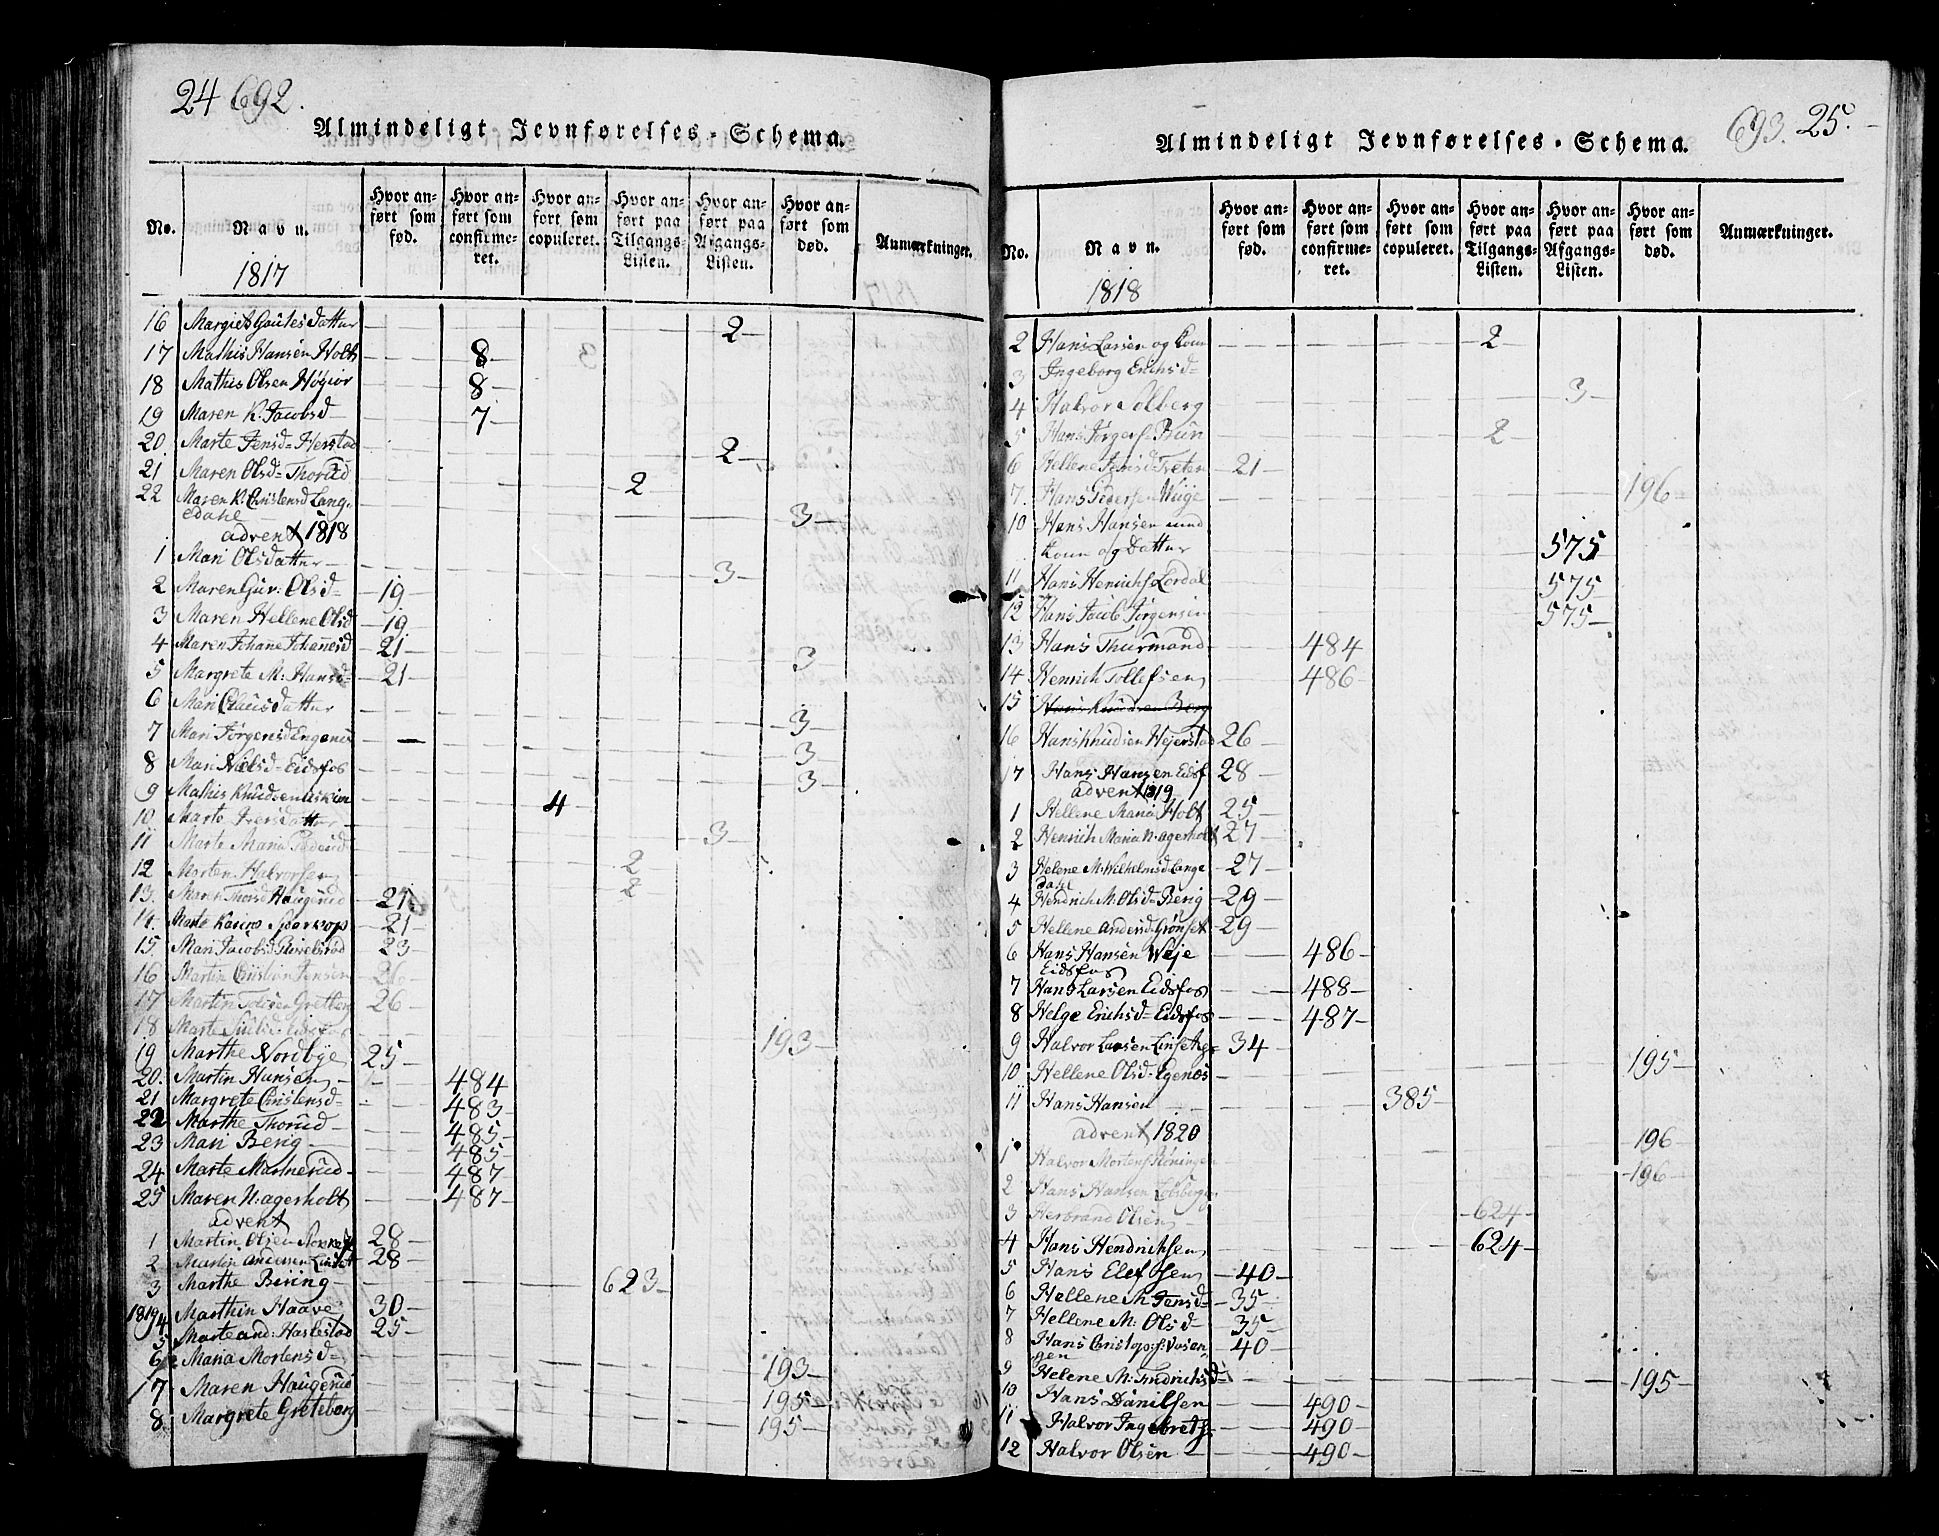 24 692.
Almindeligt Jevnførelses-Schema.
No.
Navn.
1817
Hvor anført som fød.
Hvor anført som confirmeret.
Hvor anført som copuleret.
Hvor anført paa Tilgangs-Listen.
Hvor anført paa Afgangs-Listen.
Hvor anført som død.
Anmærkninger.
16 Margiet Goutesdatter 2
17 Mathis Hansen Holt 8
18 Mathis Olsen 8
19 Maren K. Jacobsd 7
20. Marte Jensd Herstad 2
21 Maren Olsd Thorud 2
22 Maren K. Christensd Lange
dahl 3
advent 1818
1 Mari Olsdatter 3
2 Maren Gur: Olsd 19
3 Maren Hellene Olsd 19
4 Maren Johane Johanesd 21
5 Margrete M: Hansd 21
6 Mari Clausdatter 3
7 Mari Jørgensd 3
8 Mari Nielsd Eidsfos 3
9 Mathis Knudsen 4
10. Marte Iversdatter 3
11 Marte Maria 2
12 Morten Halvorsen 2
13. Maren Thorsd Haugerud 21
14. Marte Karine 21
15. Mari Jacobsd 23
16 Martin Cristian Jensen 26
17 Martin 26
18 Marte 193
19 Marthe Nordbye 25
20. Martin Hansen 484
21 Margrete Christensd 483
22 Marthe Thorud 485
23 Mari Berig 485
24 Marte 487
25 Maren N: agerholt 487
advent
1 Martin Olsen 28
2 Martin Andersen 28
3 Marthe Bering 623
1819/4 Marthin Haave 30
5 Marte and: Haslestad 25
6 Maria Mortensd 193
7 Maren Haugerud 195
8 Margrete Greteborg 195
693. 25.
Almindeligt Jevnførelses-Schema.
No.
Navn.
1818
Hvor anført som fød.
Hvor anført som confirmeret.
Hvor anført som copuleret.
Hvor anført paa Tilgangs-Listen.
Hvor anført paa Afgangs-Listen.
Hvor anført som død.
Anmærkninger.
2 Hans Larsen og Kone 2
3 Ingeborg Erichsd
4 Halvor Solberg 3
5 Hans Jørgens: Brun 2
6 Hellene Jensd 21
7. Hans Pedersen 196
10 Hans Hansen med
Kone og Datter 575
11 Hans Henrichs 575
12 Hans Jacob Jørgensen 575
13 Hans Thurmand 484
14 Henrich Tollefsen 486
15 Hans Knudsen Berg
16 Hans Knudsen Hejerstad 26
17 Hans Hansen Eidsf 28
advent 1819
1 Hellene Maria Holt 25
2 Henrich Maria N: agerholt 27
3 Helene M: Wilhelmsd Lange
dahl 27
4 Hendrich M. Olsd Berig 29
5 Hellene Andersd Grønset 29
6 Hans Hansen Weje
Eidsfos 486
7 Hans Larsen Eidsfos 488
8 Helge Erichsd Eidsfos 487
9 Halvor Larsen 34
10. Hellene Olsd Egenes 195
11 Hans Hansen 385
advent 1820
1 Halvor Mortens 196
2 Hans Hansen 196
3 Herbrand Olsen 624
4 Hans Hendrichsen 624
5 Hans Elefsen 40
6 Hellene M. Jensd 35
7 Hellene M: Olsd 35
8 Hans Christophs: 40
9 Helene M: Fredrichsd 195
10 Hans Danilsen 490
11 Halvor Ingebreths 490
12 Halvor Olsen 490